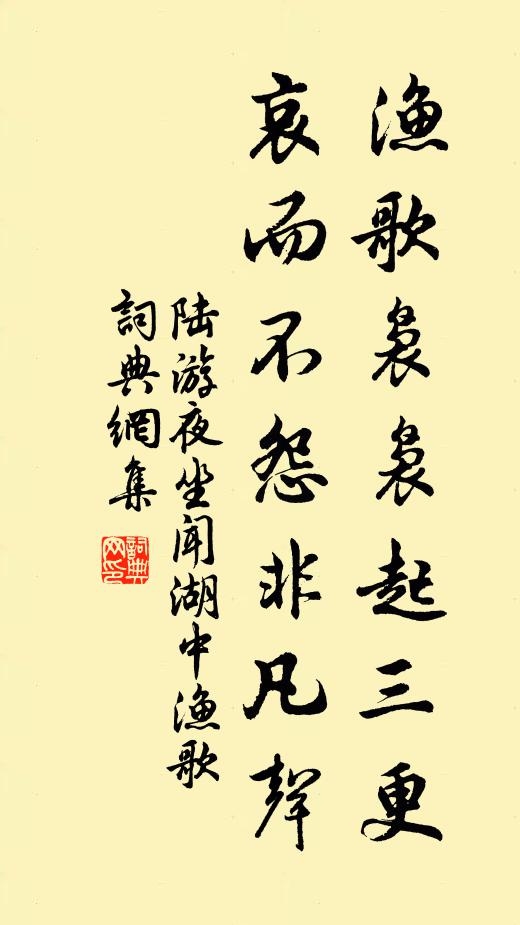 漁歌裊裊起三更
哀而不怨非凡聲
陆游夜坐闻湖中漁歌
詞典網集
詞典网印